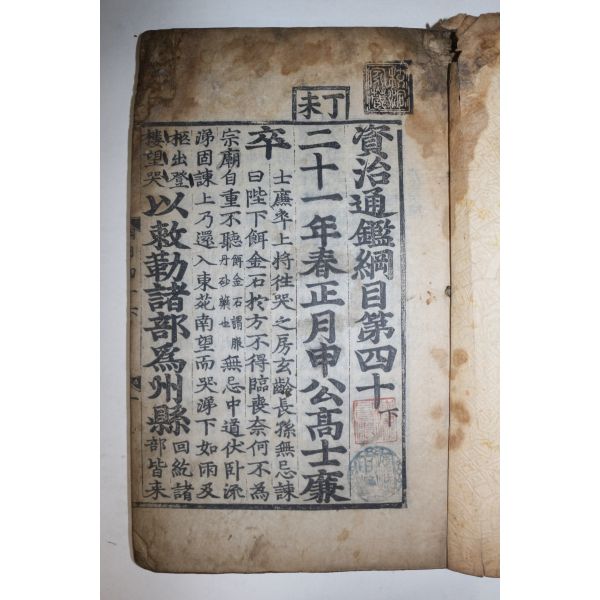 資治通鑑綱目第四十下
丁未
二十一年春正月申公高士廉
卒
士廉卒上將徃哭之房玄齡長孫無忌諫
曰陛下餌金石於方不得臨喪奈何不爲
宗廟自重不聽餌金石謂服丹砂藥也無忌中道伏卧流
涕固諫上乃還入東苑南望而哭涕下如雨及
柩出登
樓望哭
以敕勒諸部爲州縣
回紇諸
部皆来